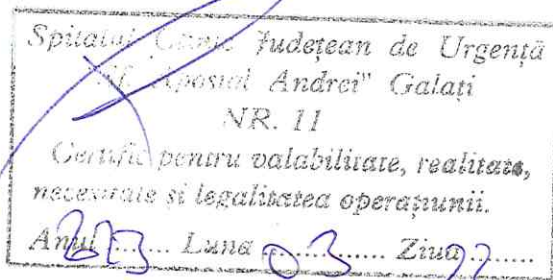 Spitalul Clinic Județean de Urgență
"Sf. Apostol Andrei" Galați
NR. 11
Certific pentru valabilitate, realitate,
necesitate si legalitatea operațiunii.
Anul ....... Luna 03 ....... Ziua .......